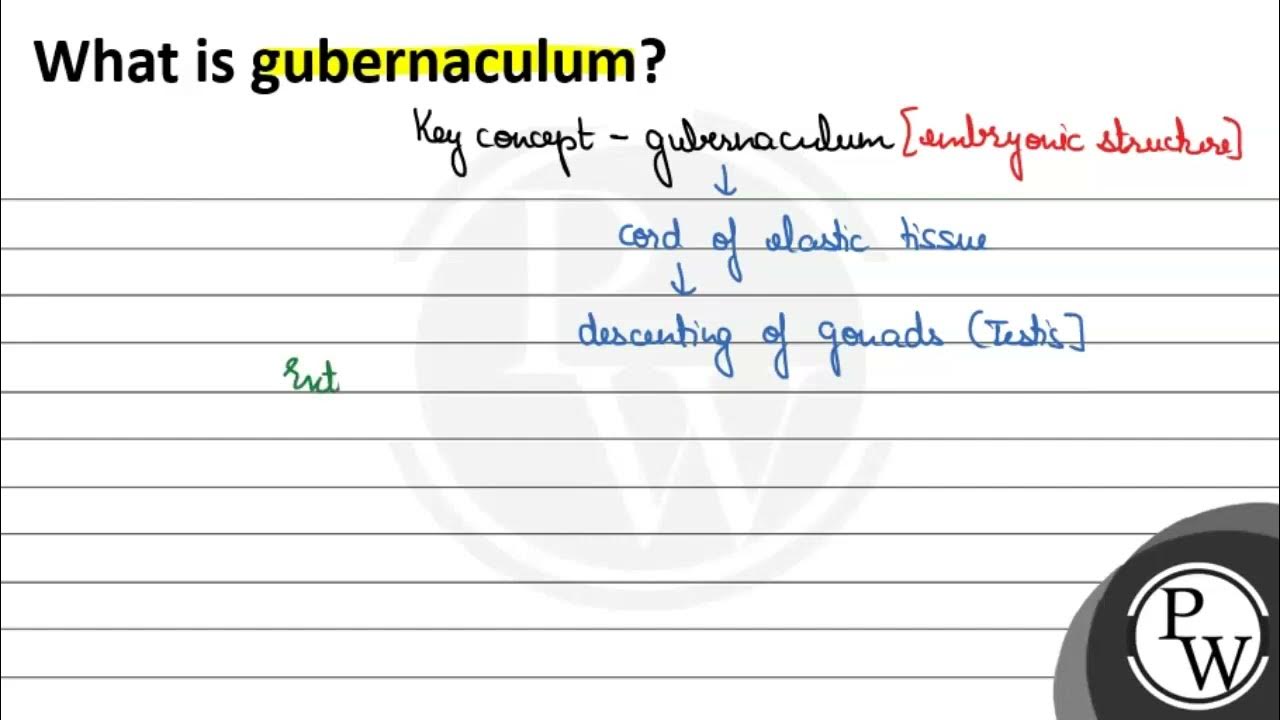 What is gubernaculum?
Key concept - gubernaculum [embryonic structure]
↓
cord of elastic tissue
↓
descenting of gonads (Testis]
Ext
PW
PW